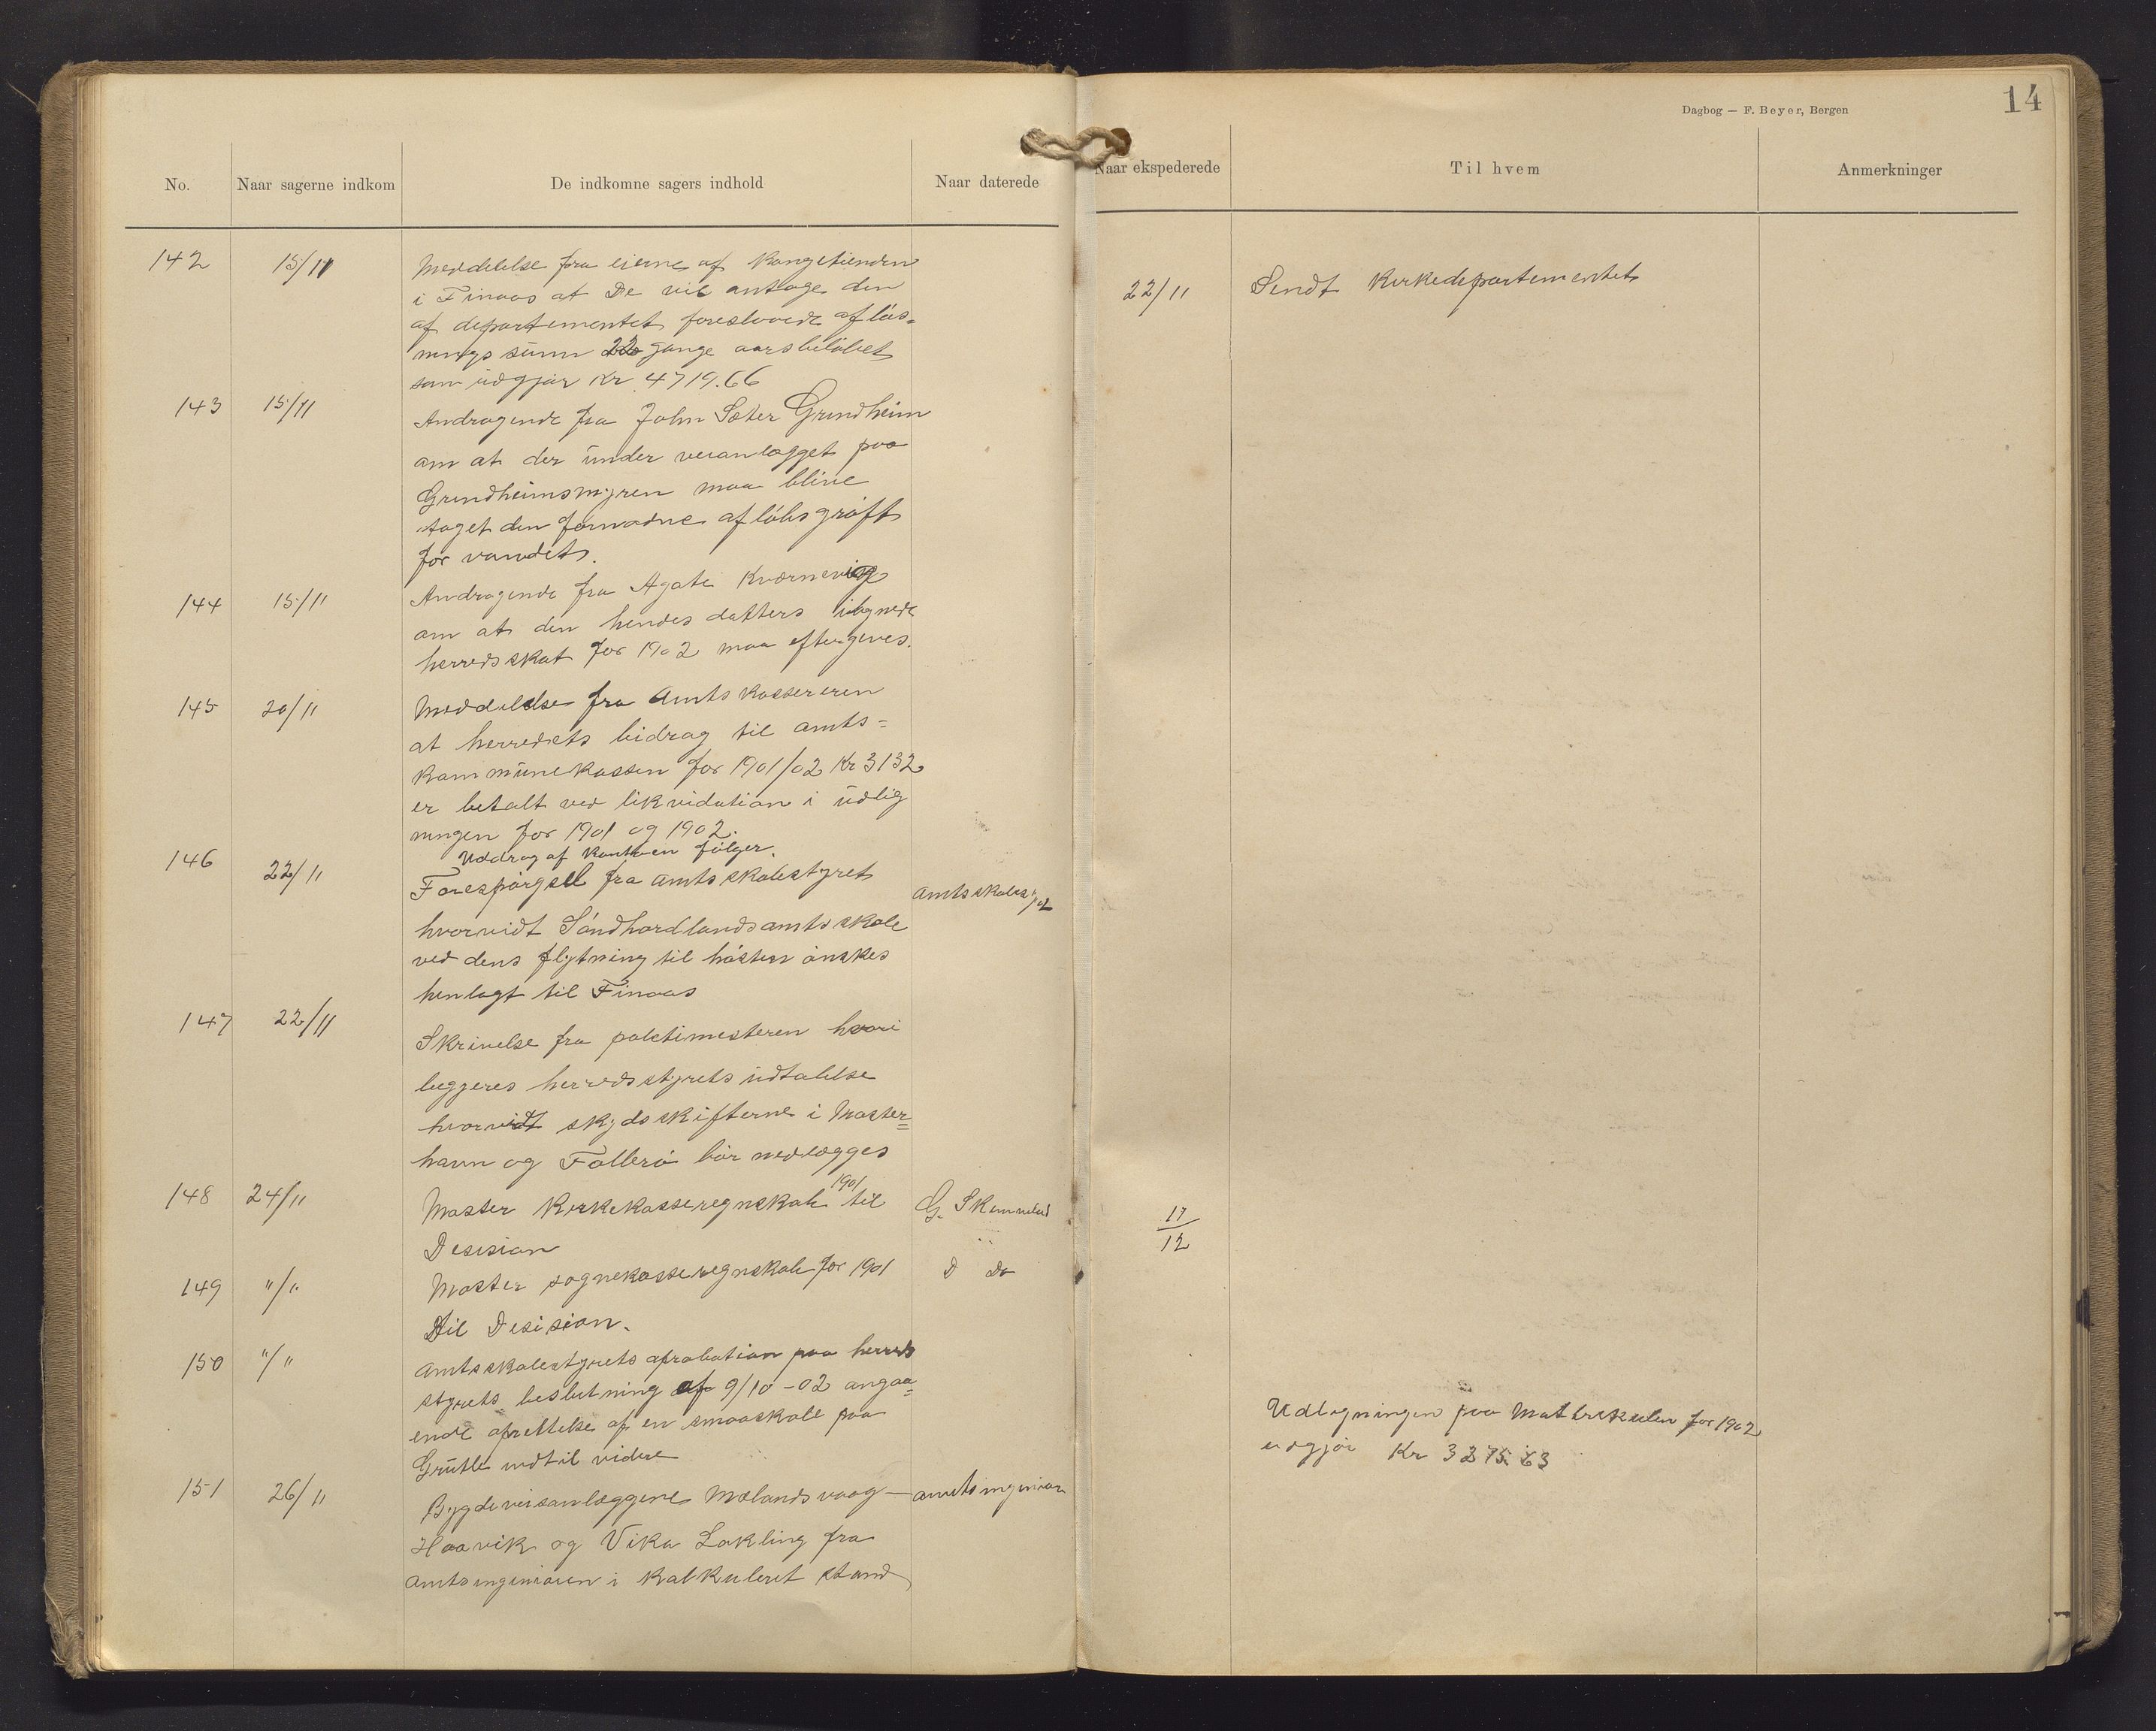 14
Dagbog — F. Beyer, Bergen
No. Naar sagerne indkom De indkomne sagers indhold Naar daterede Naar ekspederede Til hvem Anmerkninger
142 15/11 Meddelelse fra eierne af Kongetienden
i Finaas at De vil antage den
af departementet foreslaaede afløs-
nings sum 22 gange aarsbeløbet
som udgjør Kr 4719.66
22/11 Sendt Kirkedepartementet
143 15/11 Andragende fra John Sæter Grindheim
om at der under veianlægget paa
Grindheimsmyren maa blive
taget den fornødne afløbsgrøft
for vandet.
144 15/11 Andragende fra Agate Kværnevig
om at den hendes datters ilignede
herredsskat for 1902 maa eftergives.
145 20/11 Meddelelse fra Amtskassereren
at herredets bidrag til amts=
kommunekassen for 1901/02 Kr 3132
er betalt ved likvidation i udlig
ningen for 1901 og 1902.
Uddrag af Kontoen følger.
146 22/11 Forespørgsel fra amtsskolestyret Amtsskolestyret
hvorvidt Søndhordlands amtsskole
ved dens flytning til høsten ønskes
henlagt til Finaas
147 22/11 Skrivelse fra politimesteren hvori
beggeres herredsstyrets udtalelse
hvorvidt skydsskifterne i Moster=
havn og Follerø bør nedlægges
148 24/11 Moster Kirkekasseregnskab 1901 til G. 17/12
Desision
149 "/" Moster sognekasseregnskab for 1901 D Do
Til Desision.
150 "/" Amtsskolestyrets aprobation paa herreds
styrets beslutning af 9/10-02 angaa=
ende oprettelse af en smaaskole paa
Grutle indtil videre
Udligningen paa Matrikulen for 1902
udgjør Kr
151 26/11 Bygdeveisanlæggene Mælandsvaag — amtsingeniør
Haavik og Vika Løkling fra
Amtsingeniøren i Kalkuleret stand